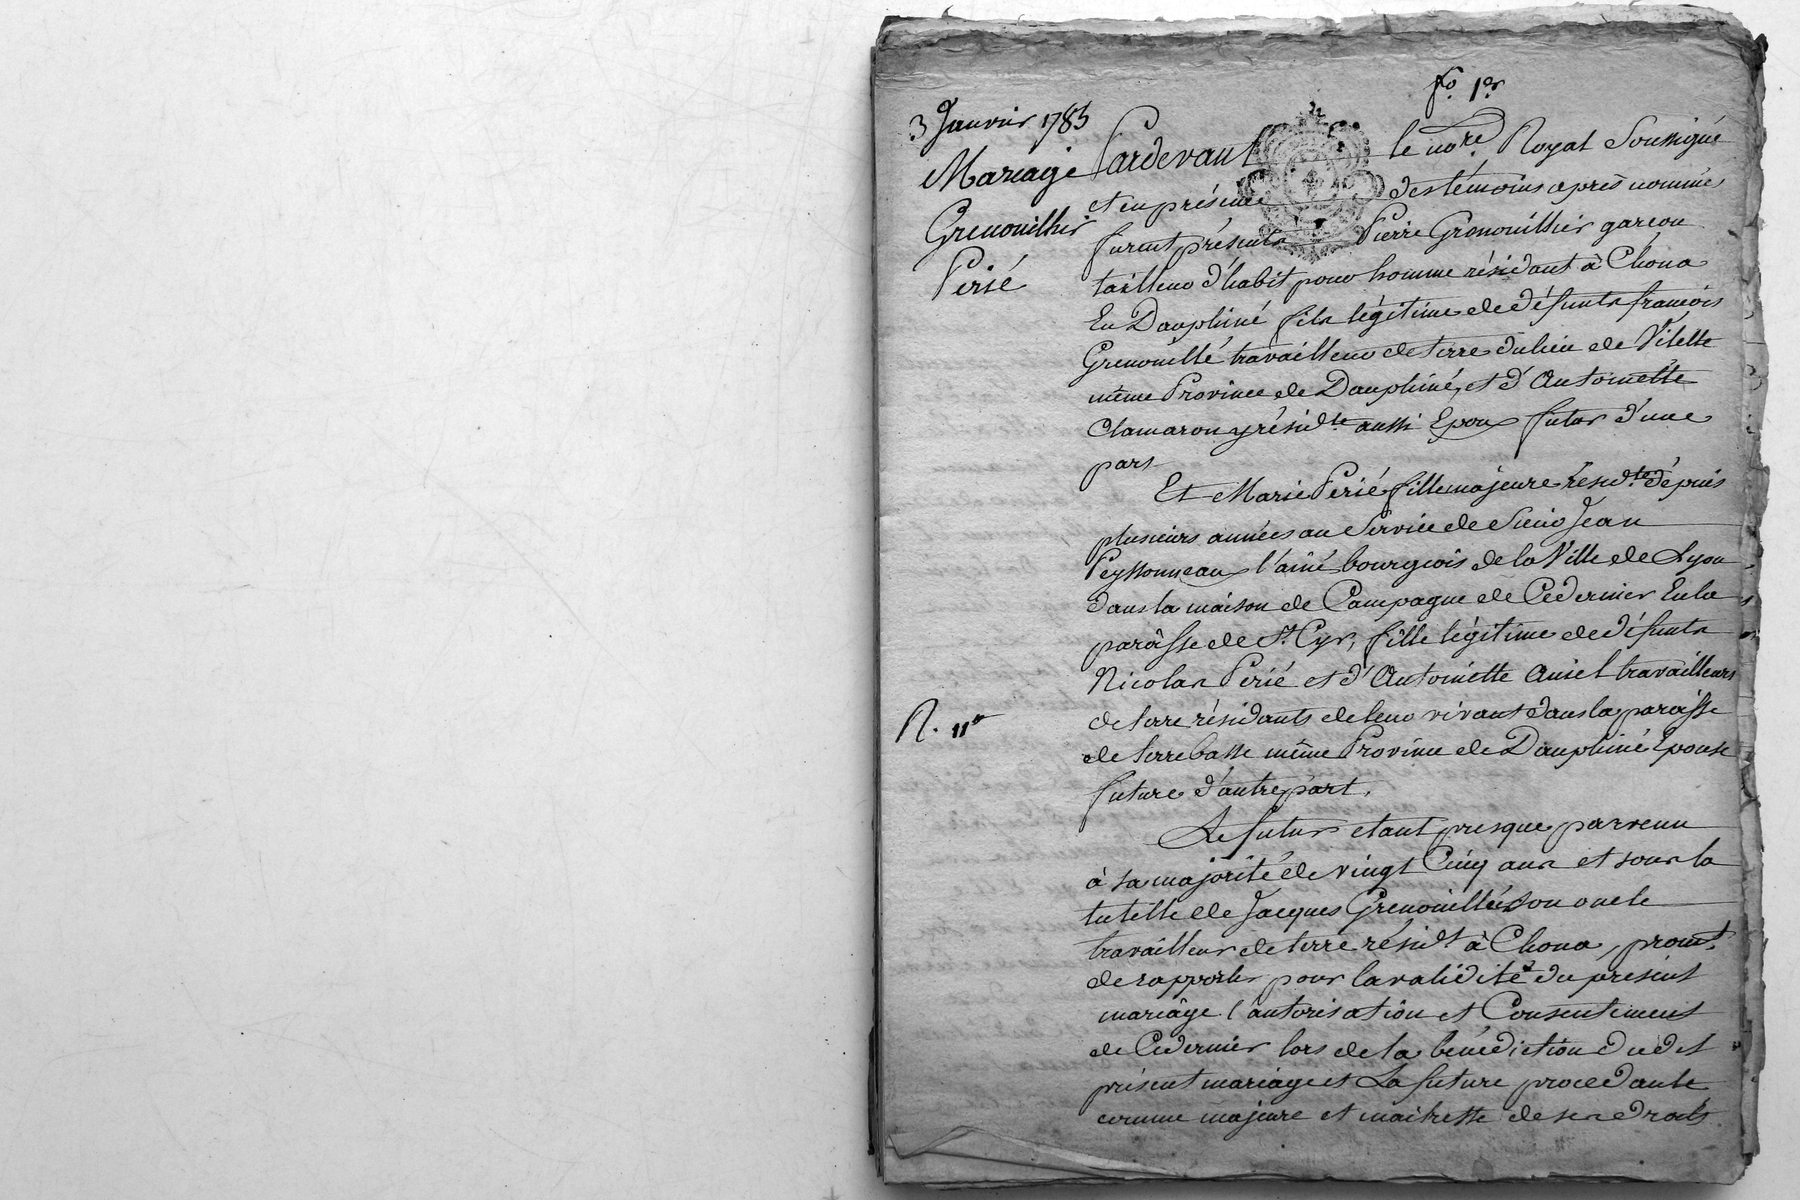 fo. 1er
3 Janvier 1783
Mariage
Grenouillier
Perié
Pardevant le nore. Royal Soussigné
et en présence des témoins après nommés
furent présents Pierre Grenouillier garcon
tailleur d'habit pour homme résidant à Chona
En Dauphiné fils légitime de défunts francois
Grenouillé travailleur de terre du lieu de Vilette
même Province de Dauphiné, et d'Antoinette
Clamaron y résidte. aussi Epoux futur d'une
part
Et Marie Perié fille majeure résidte. dépuis
plusieurs années au Service de Sieur Jean
Peyssonneau l'ainé bourgeois de la Ville de Lyon
dans la maison de Campagne de Ce dernier En la
paroisse de St. Cyr, fille légitime de défunts
Nicolas Perié et d'Antoinette Aniel travailleurs
de terre résidants de leur vivant dans la paroisse
de terrebasse même Province de Dauphiné Epouse
future d'autre part.
R. 11s
Le futur etant presque parvenu
à sa majorité de vingt Cinq ans et sous la
tutelle de Jacques Grenouillé son oncle
travailleur de terre résidt à Chona, promt.
de rapporter pour la validité du présent
mariâge l'autorisation et Consentement
de Ce dernier lors de la bénédiction dudt
présent mariage et La future procedante
comme majeure et maitresse de ses droits